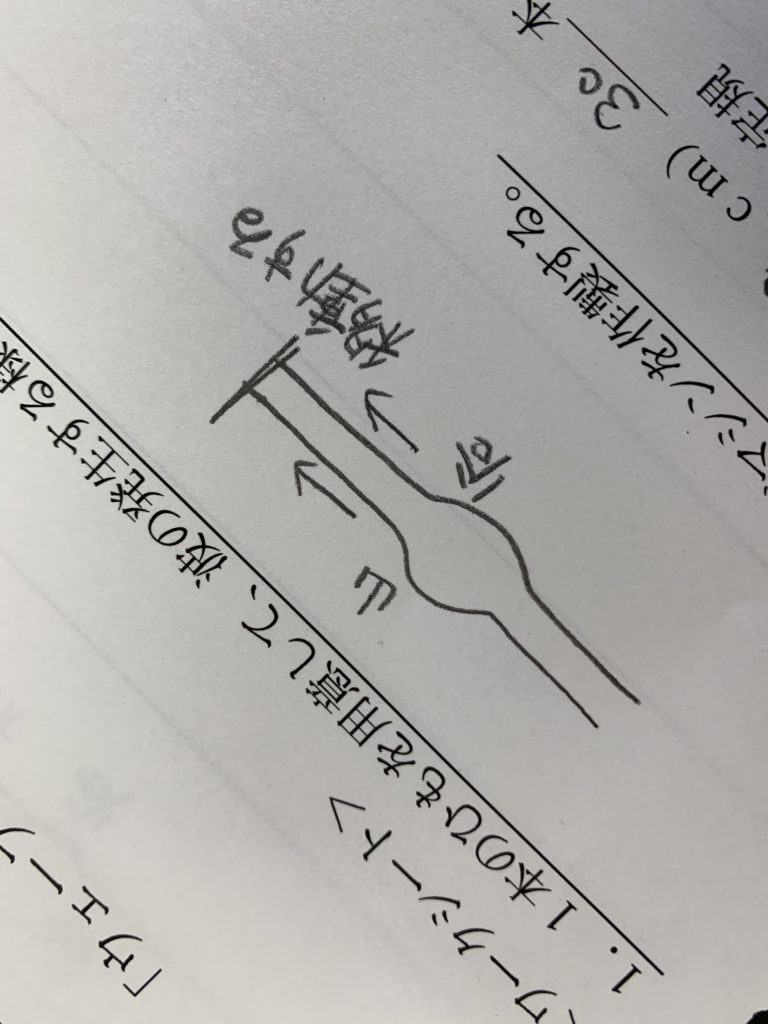 「ウェー
ワークシート>
1. 1本のひもを用意して、波の発生する様
山
→
谷
→ 移動する
マシンを作製する。
cm) 30 本
定規